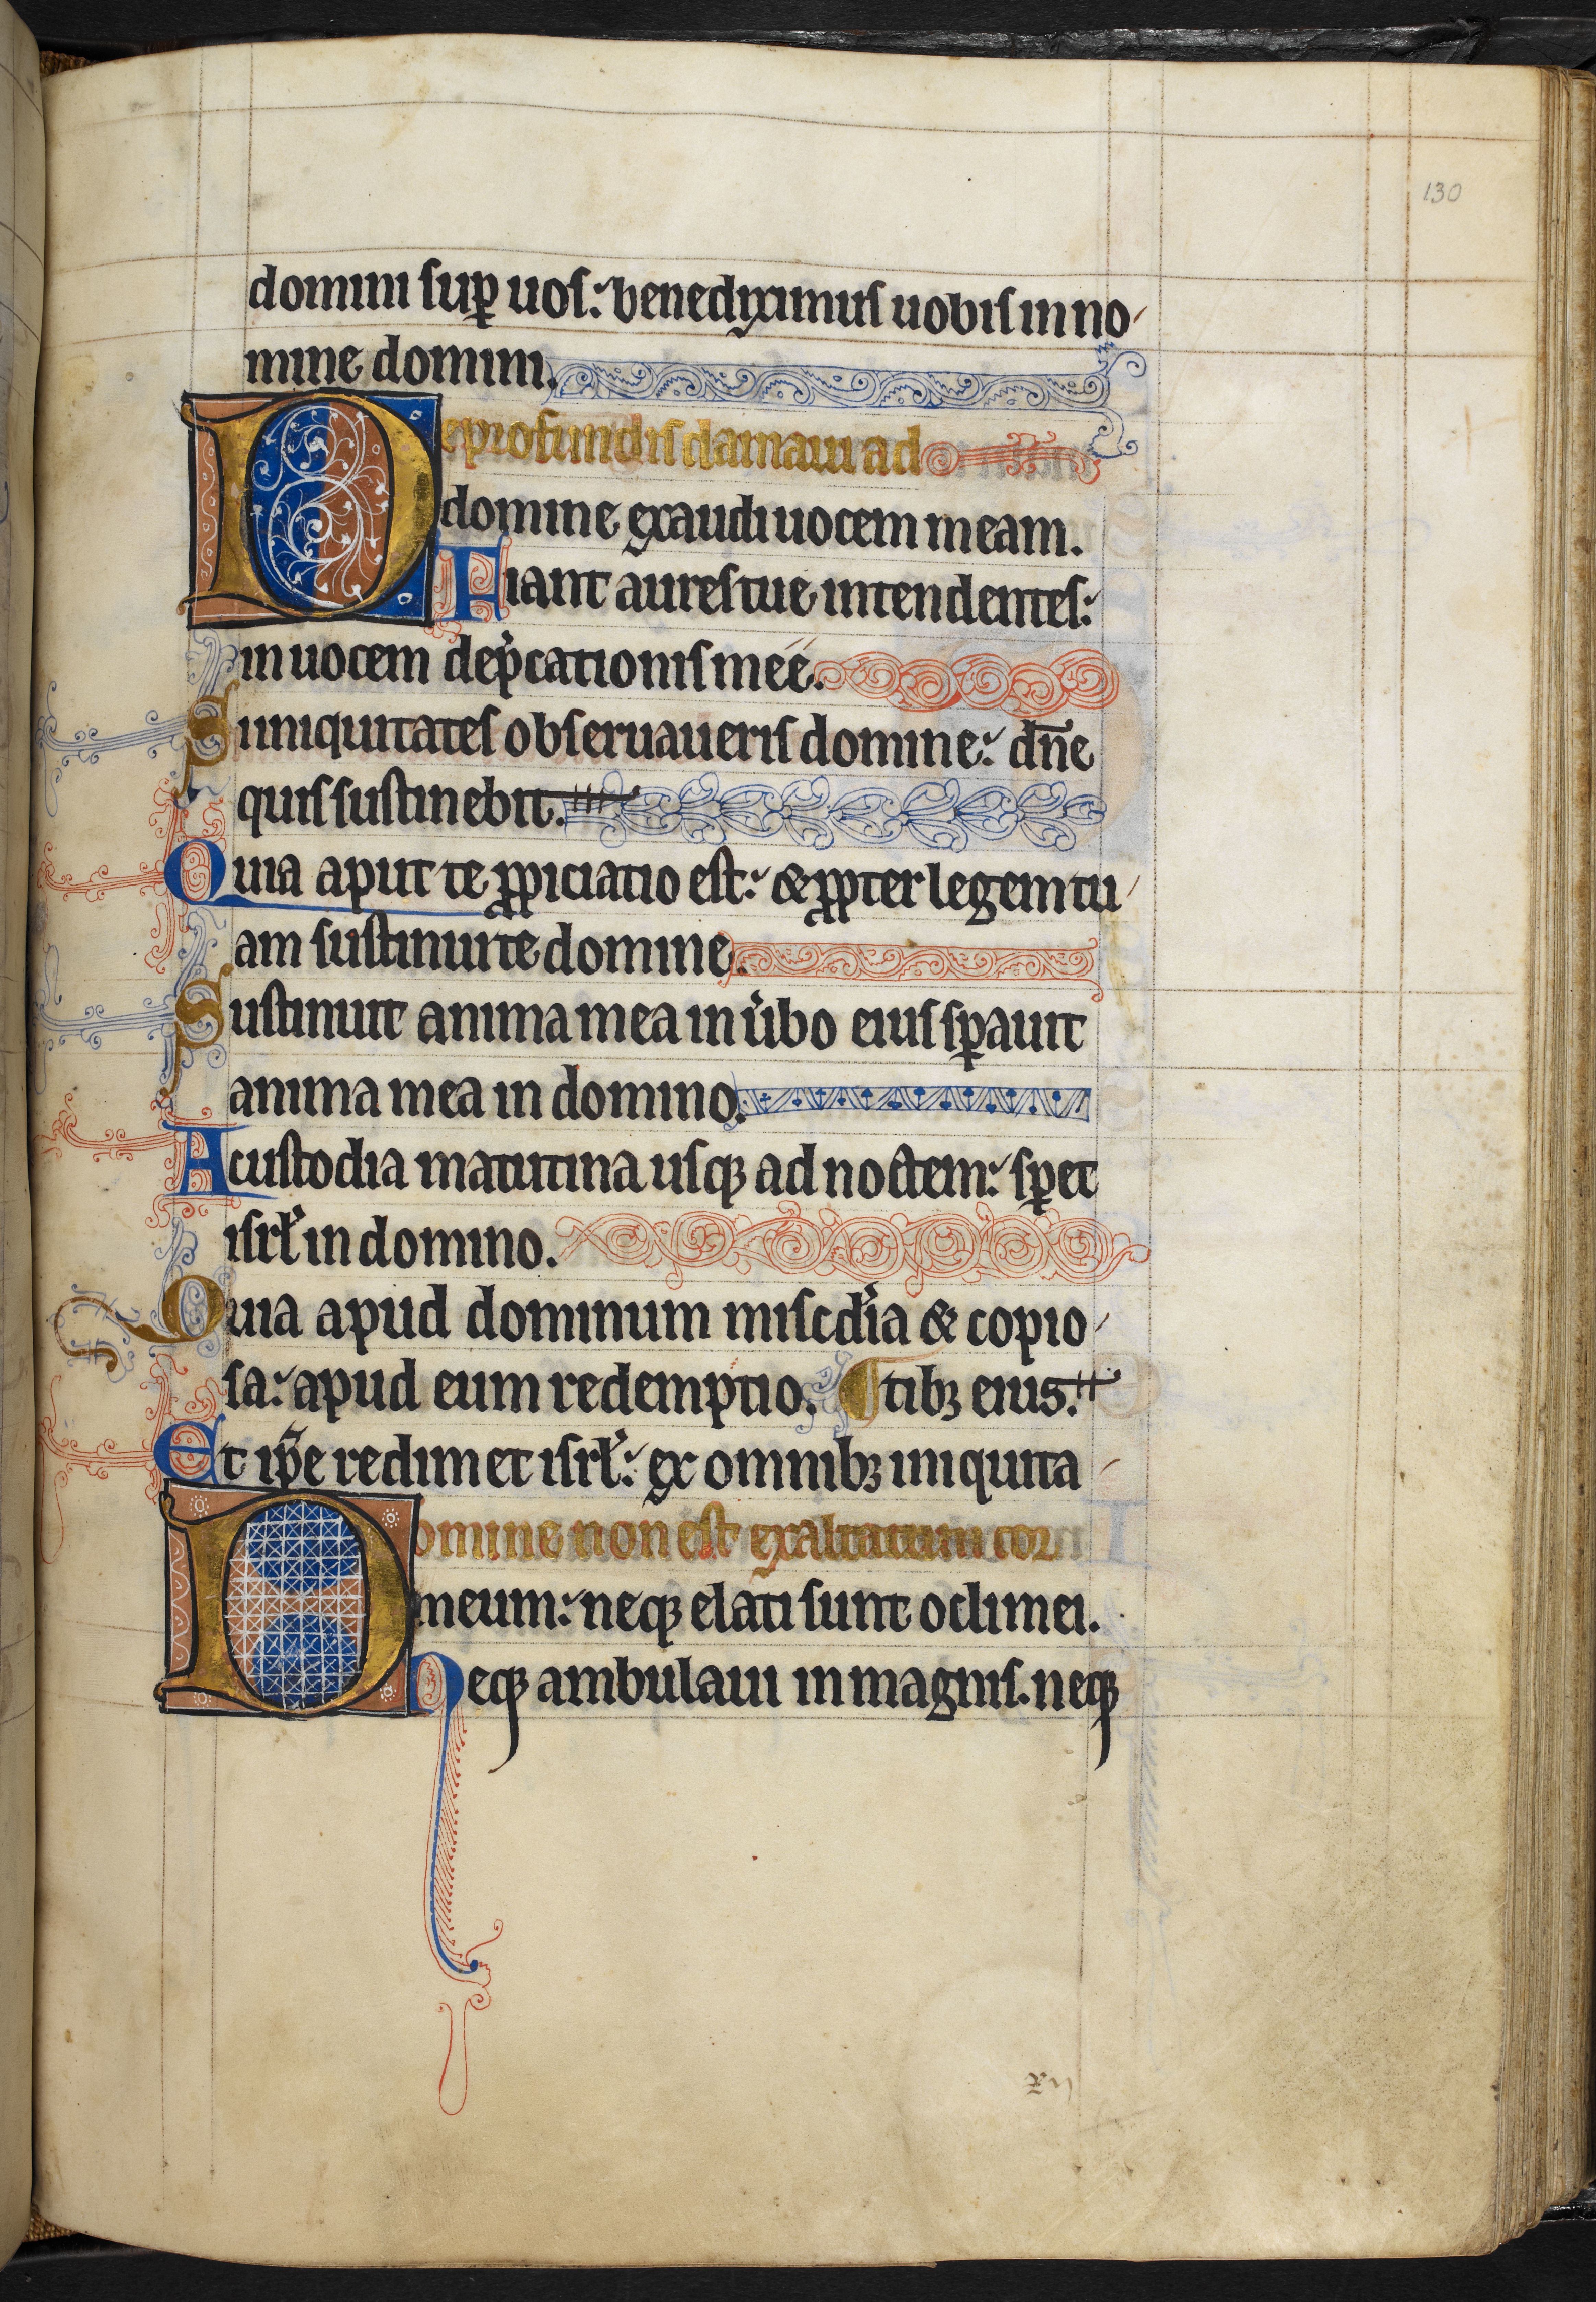 130
domini sup̱ uos: benediximus uobis in no-
mine domini.
De profundis clamaui ad
domine exaudi uocem meam.
Fiant aures tue intendentes:
in uocem dep̾cationis meé.
Si iniquitates obseruaueris domine: dn̄e
quis sustinebit.
Quia aput te ꝓpiciatio est: & ꝓpter legem tu-
am sustinui te domine.
Sustinuit anima mea in u̾bo eius sꝑauit
anima mea in domino.
A custodia matutina usqꝫ ad noctem: sꝑet
isrl̾ in domino.
Quia apud dominum misc̾dia & copio-
sa: apud eum redemptio. ¶ tibꝫ eius.
Et ip̄e redimet isrl̾: ex omnibꝫ iniquita-
Domine non est exaltatum cor
meum: neqꝫ elati sunt oculi mei.
Neqꝫ ambulaui in magnis. neqꝫ